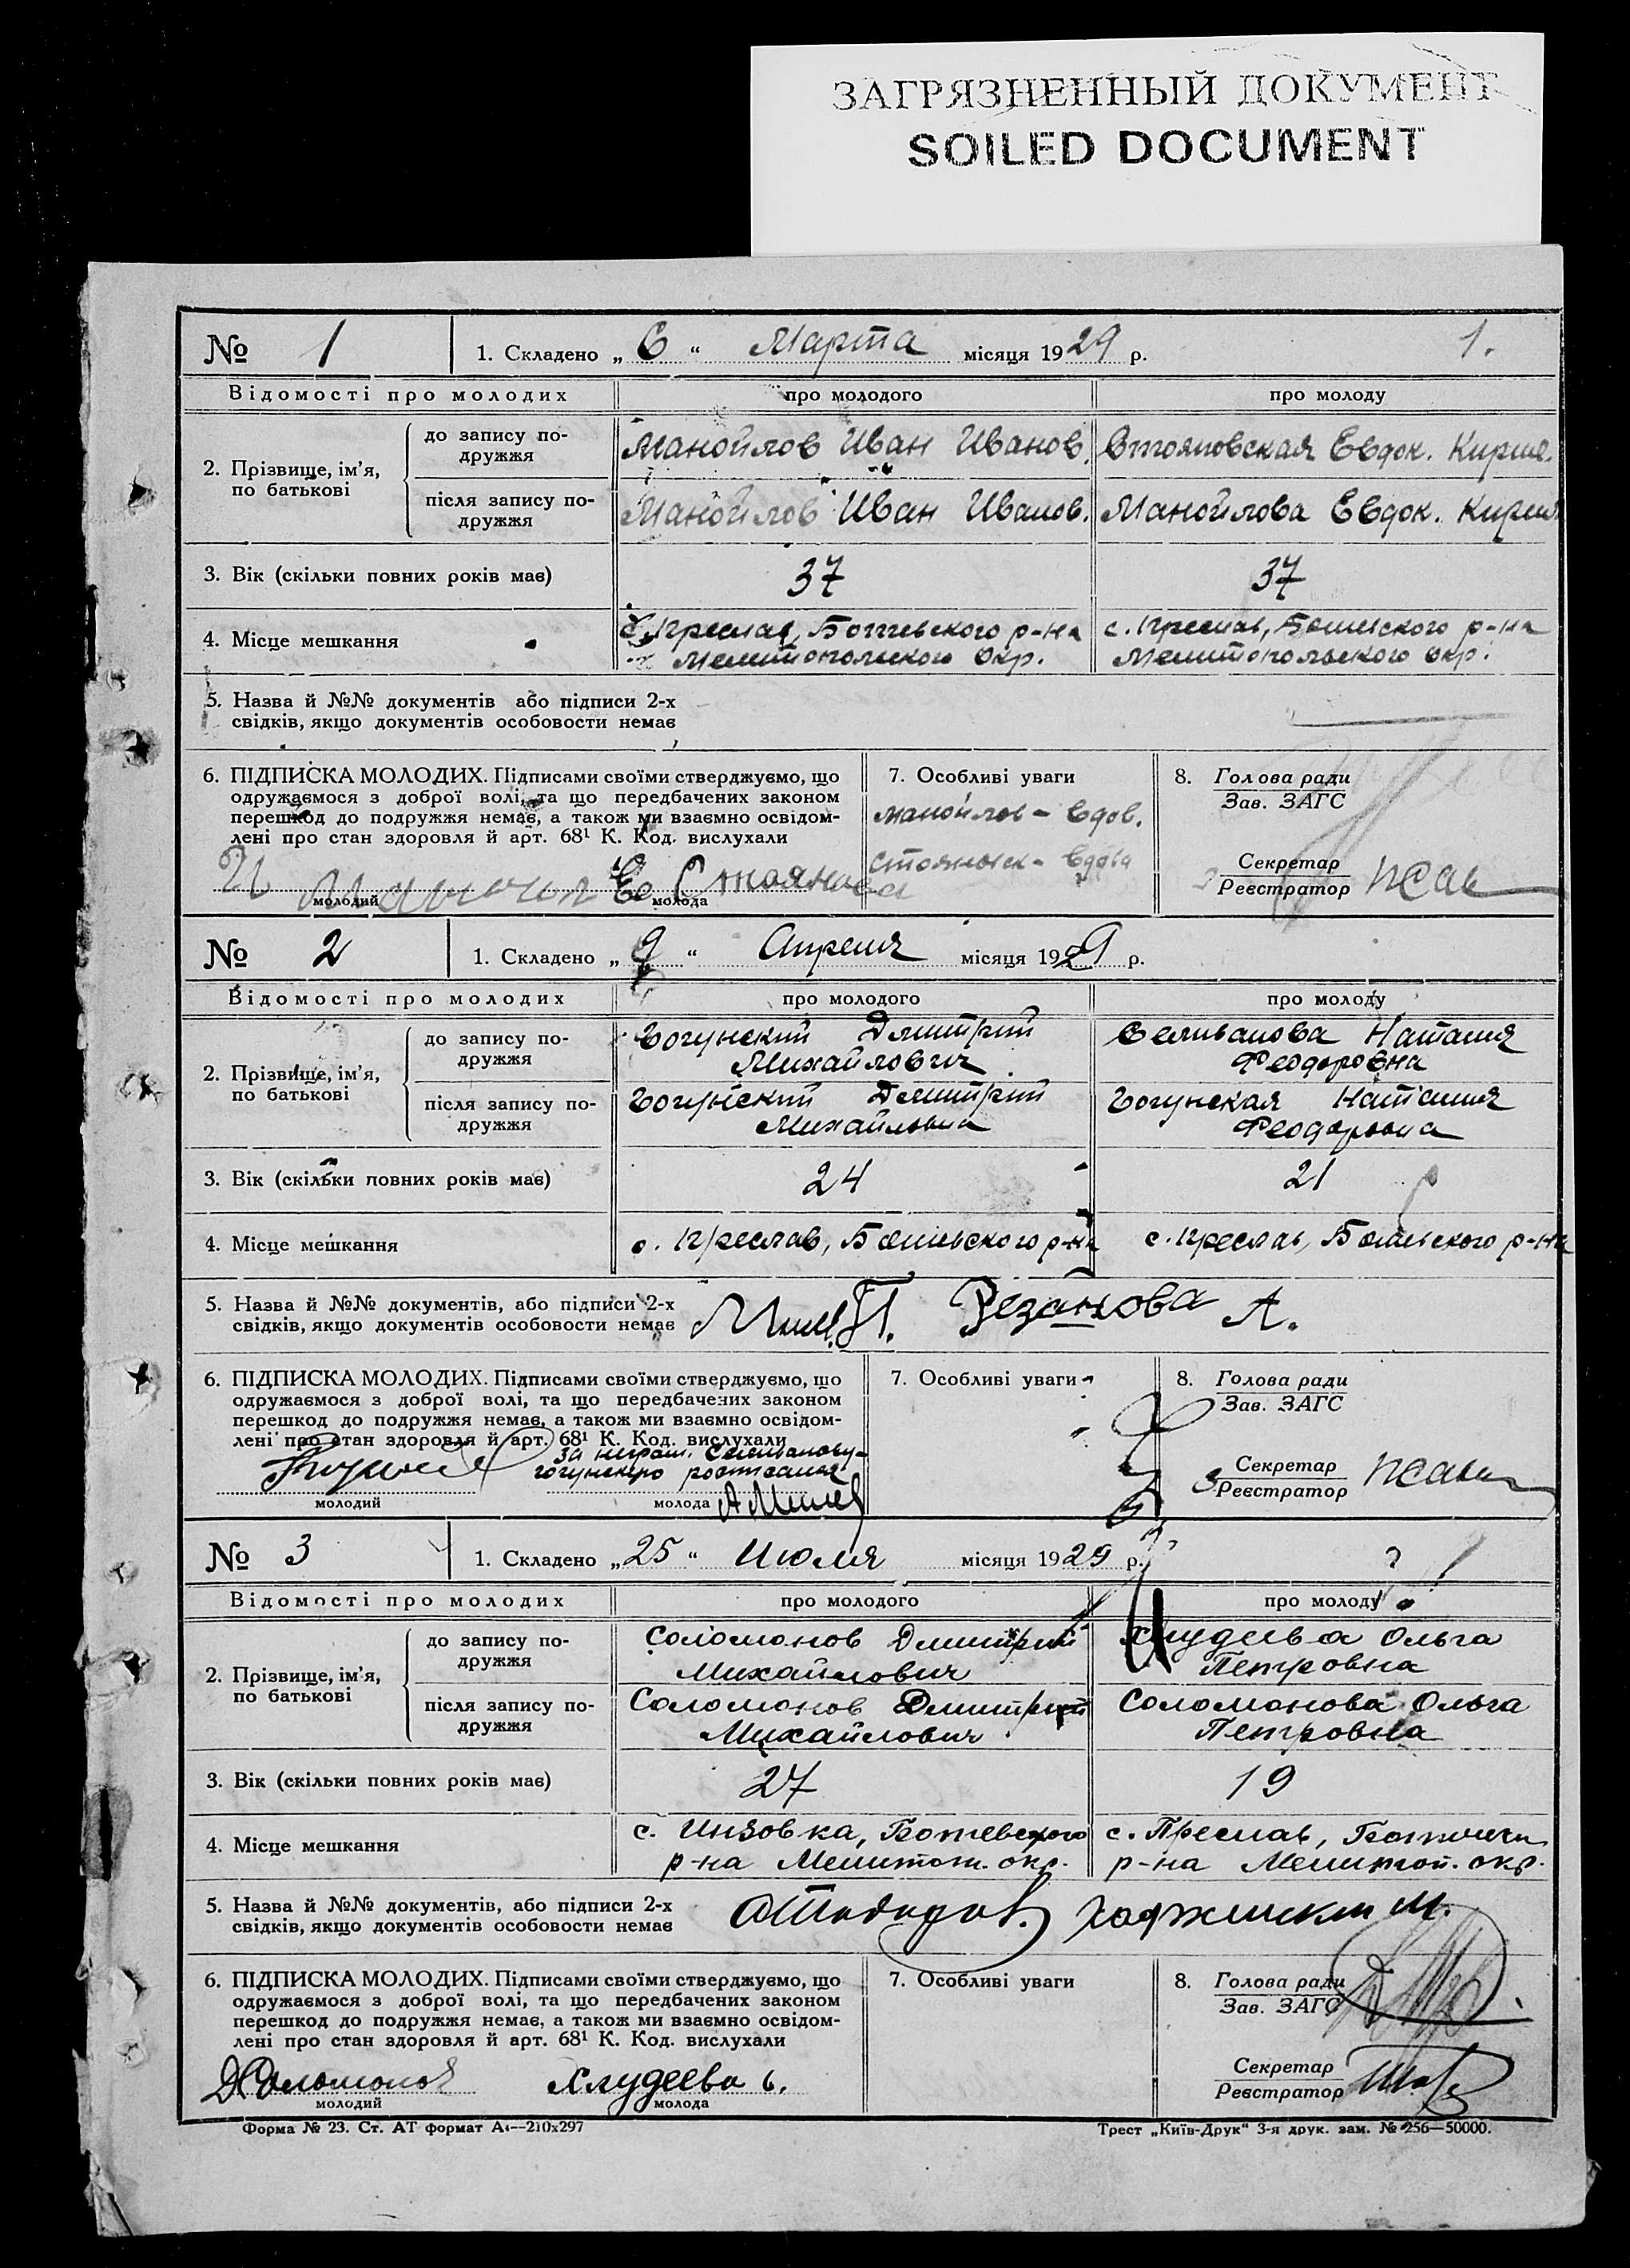 ЗАГРЯЗНЕННЫЙ ДОКУМЕНТ
SOILED DOCUMENT
№ 1 1. Складено „ 6 “ Марта місяця 1929 р. 1.
Відомості про молодих про молодого про молоду
2. Прізвище, ім’я, по батькові
до запису подружжя Манойлов Иван Иванов. Стояновская Евдок. Кирил.
після запису подружжя Манойлов Иван Иванов. Манойлова Евдок. Кирил
3. Вік (скільки повних років має) 37 37
4. Місце мешкання с. Преслав, Ботиевского р-на с. Преслав, Ботиевского р-на
Мелитопольского окр. Мелитопольского окр.
5. Назва й №№ документів або підписи 2-х
свідків, якщо документів особовости немає
6. ПІДПИСКА МОЛОДИХ. Підписами своїми стверджуємо, що
одружаємося з доброї волі, та що передбачених законом
перешкод до подружжя немає, а також ми взаємно освідом-
лені про стан здоровля й арт. 68¹ К. Код. вислухали
И Е Стоянова
молодий молода
7. Особливі уваги
Манойлов - вдов.
Стояновск - вдова
8. Голова ради
Зав. ЗАГС
Секретар
Реєстратор
№ 2 1. Складено „ 9 “ Апреля місяця 1929 р.
Відомості про молодих про молодого про молоду
2. Прізвище, ім’я, по батькові
до запису подружжя Богунский Дмитрий Селиванова Наталия
Михайлович Феодоровна
після запису подружжя Богунский Дмитрий Богунская Наталия
Феодоровна
3. Вік (скільки повних років має) 24 21
4. Місце мешкання с. Преслав, Ботиевского р-на с. Преслав, Ботиевского р-на
5. Назва й №№ документів, або підписи 2-х
свідків, якщо документів особовости немає Резанова А.
6. ПІДПИСКА МОЛОДИХ. Підписами своїми стверджуємо, що
одружаємося з доброї волі, та що передбачених законом
перешкод до подружжя немає, а також ми взаємно освідом-
лені про стан здоровля й арт. 68¹ К. Код. вислухали
за неграм. Селиванову-
молодий молода
7. Особливі уваги
8. Голова ради
Зав. ЗАГС
Секретар
Реєстратор
№ 3 1. Складено „ 25 “ Июля місяця 1929 р. ? !
Відомості про молодих про молодого про молоду
2. Прізвище, ім’я, по батькові
до запису подружжя Соломонов Дмитрий Хлудеева Ольга
Михайлович Петровна
після запису подружжя Соломонов Дмитрий Соломонова Ольга
Михайлович Петровна
3. Вік (скільки повних років має) 27 19
4. Місце мешкання с. Инзовка, Ботиевского с. Преслав,
р-на Мелитоп. окр. р-на Мелитоп. окр.
5. Назва й №№ документів, або підписи 2-х
свідків, якщо документів особовости немає М.
6. ПІДПИСКА МОЛОДИХ. Підписами своїми стверджуємо, що
одружаємося з доброї волі, та що передбачених законом
перешкод до подружжя немає, а також ми взаємно освідом-
лені про стан здоровля й арт. 68¹ К. Код. вислухали
ДСоломонов Хлудеева
молодий молода
7. Особливі уваги
8. Голова ради
Зав. ЗАГС
Секретар
Реєстратор
Форма № 23. Ст. АТ формат А4—210х297 Трест „Київ-Друк“ 3-я друк. зам. № 256—50000.